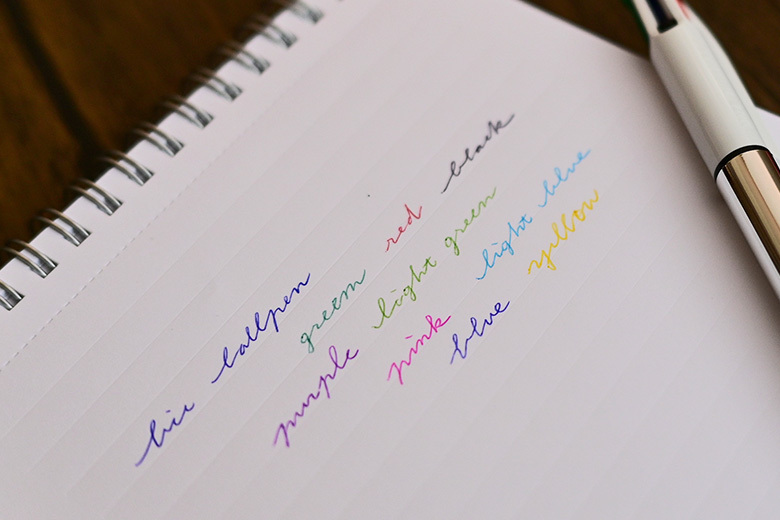 bic ballpen
green red black
purple light green
pink light blue
blue yellow